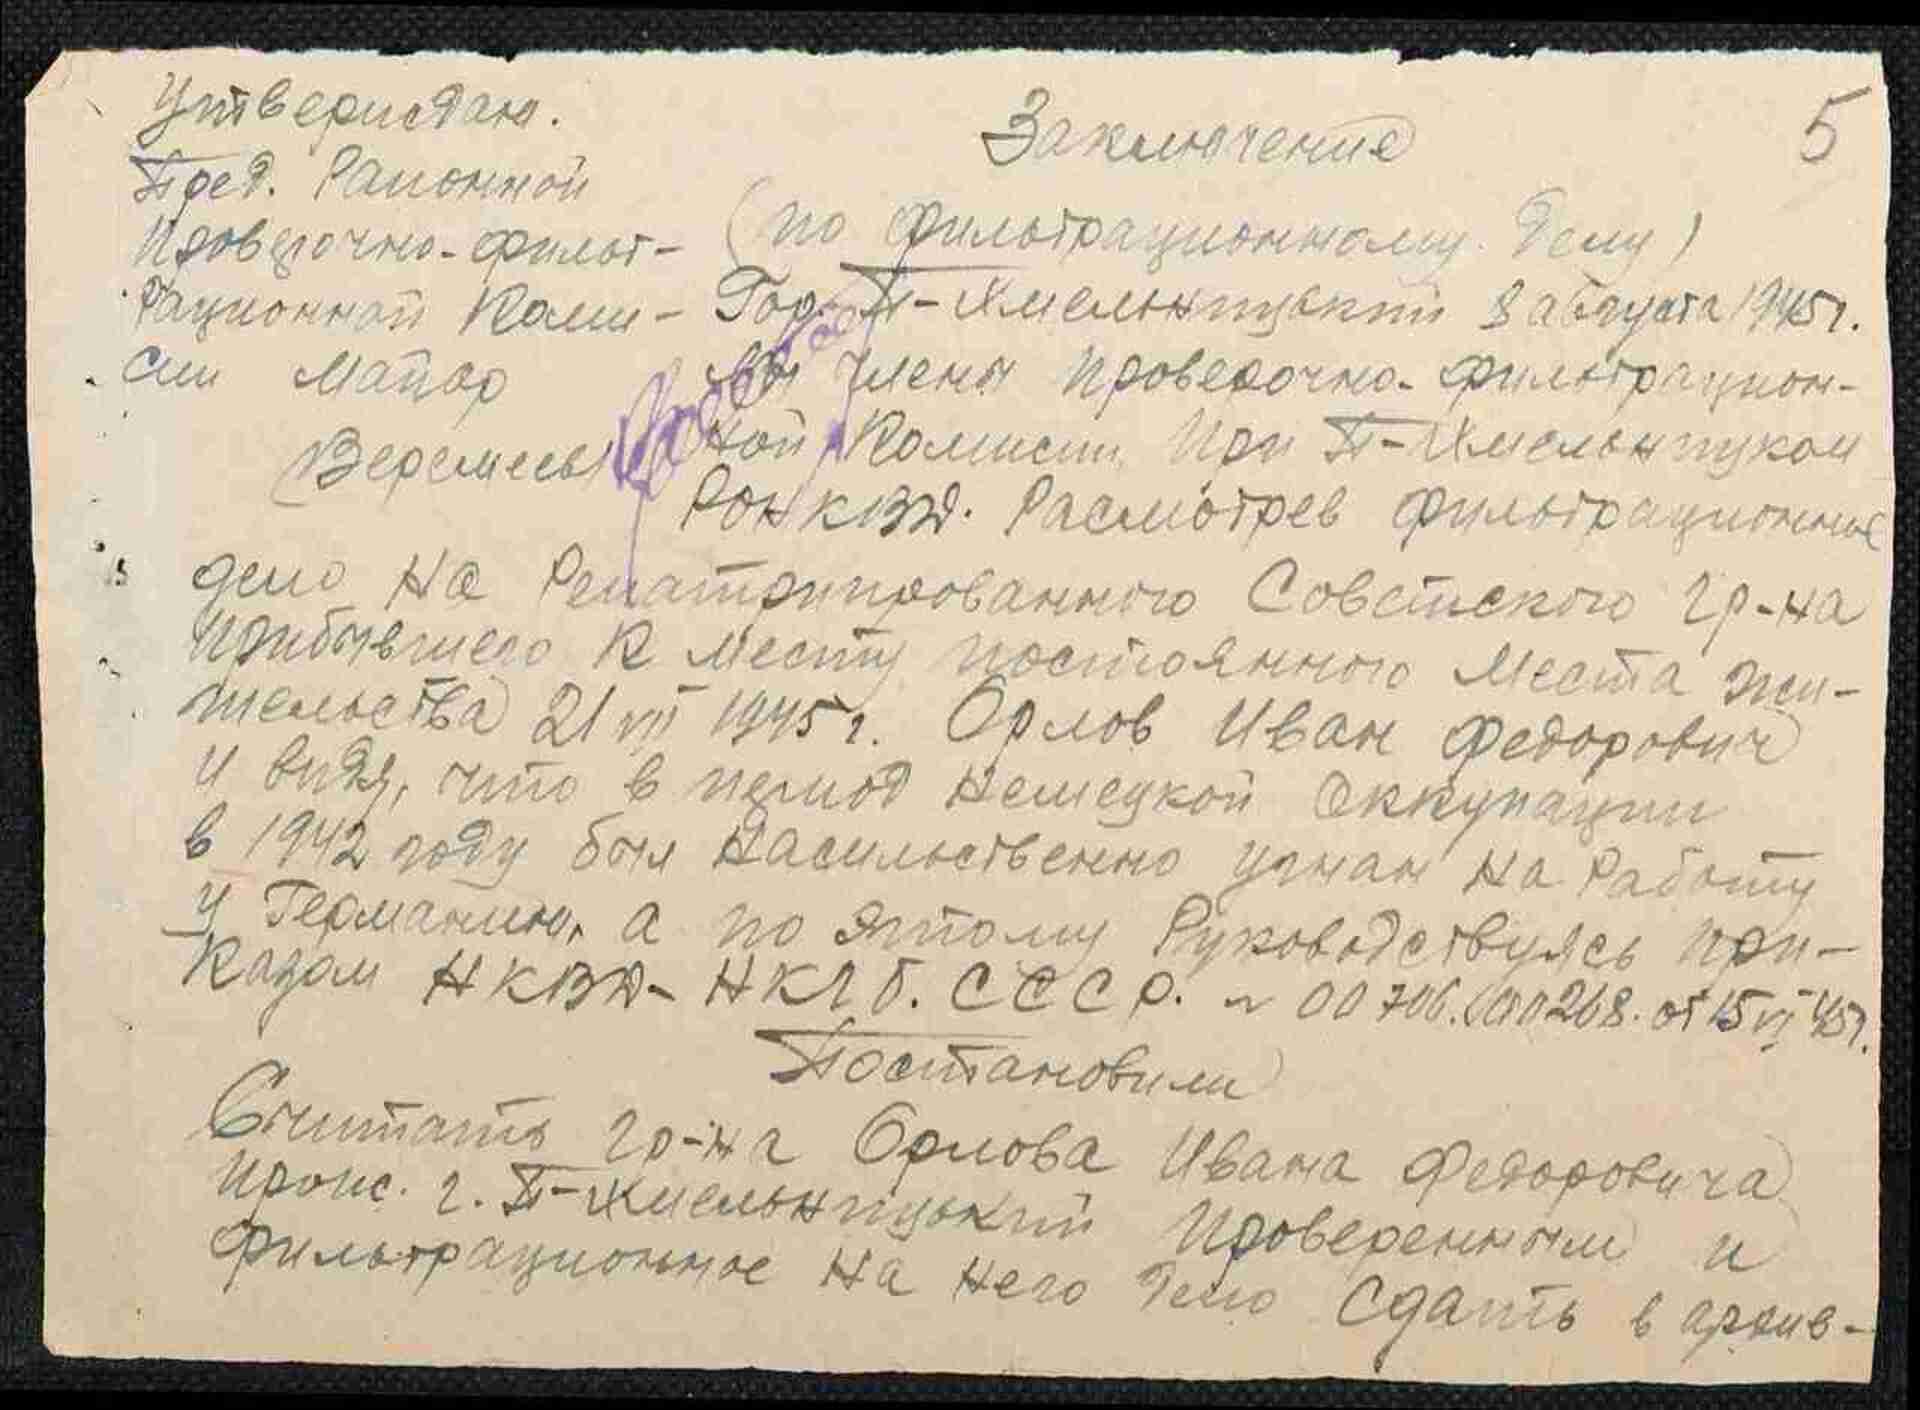 Утверждаю.
Пред. Районной
Проверочно-фильт-
рационной Коми-
сии Майор
(Веремеев)
5
Заключение
(по фильтрационному делу)
Гор. П-Хмельницький 8 августа 1945г.
Мы члены Проверочно-фильтрацион-
ной Комисии При П-Хмельницком
РОНКВД. Расмотрев фильтрационное
дело на Репатриированного Советского гр-на
Прибывшего к месту постоянного места жи-
тельства 21 VII 1945г. Орлов Иван Федорович
и видя, что в период Немецкой Оккупации
в 1942 году был Насильственно угнан на Работу
у Германию, а по этому Руководствуясь При-
казом НКВД-НКГБ. СССР. № 00706.(00268. от 15 VI 45г.
Постановили
Считать гр-на Орлова Ивана Федоровича
Прожс. г. П-Хмельницький Проверенным и
фильтрационное на него дело Сдать в архив-